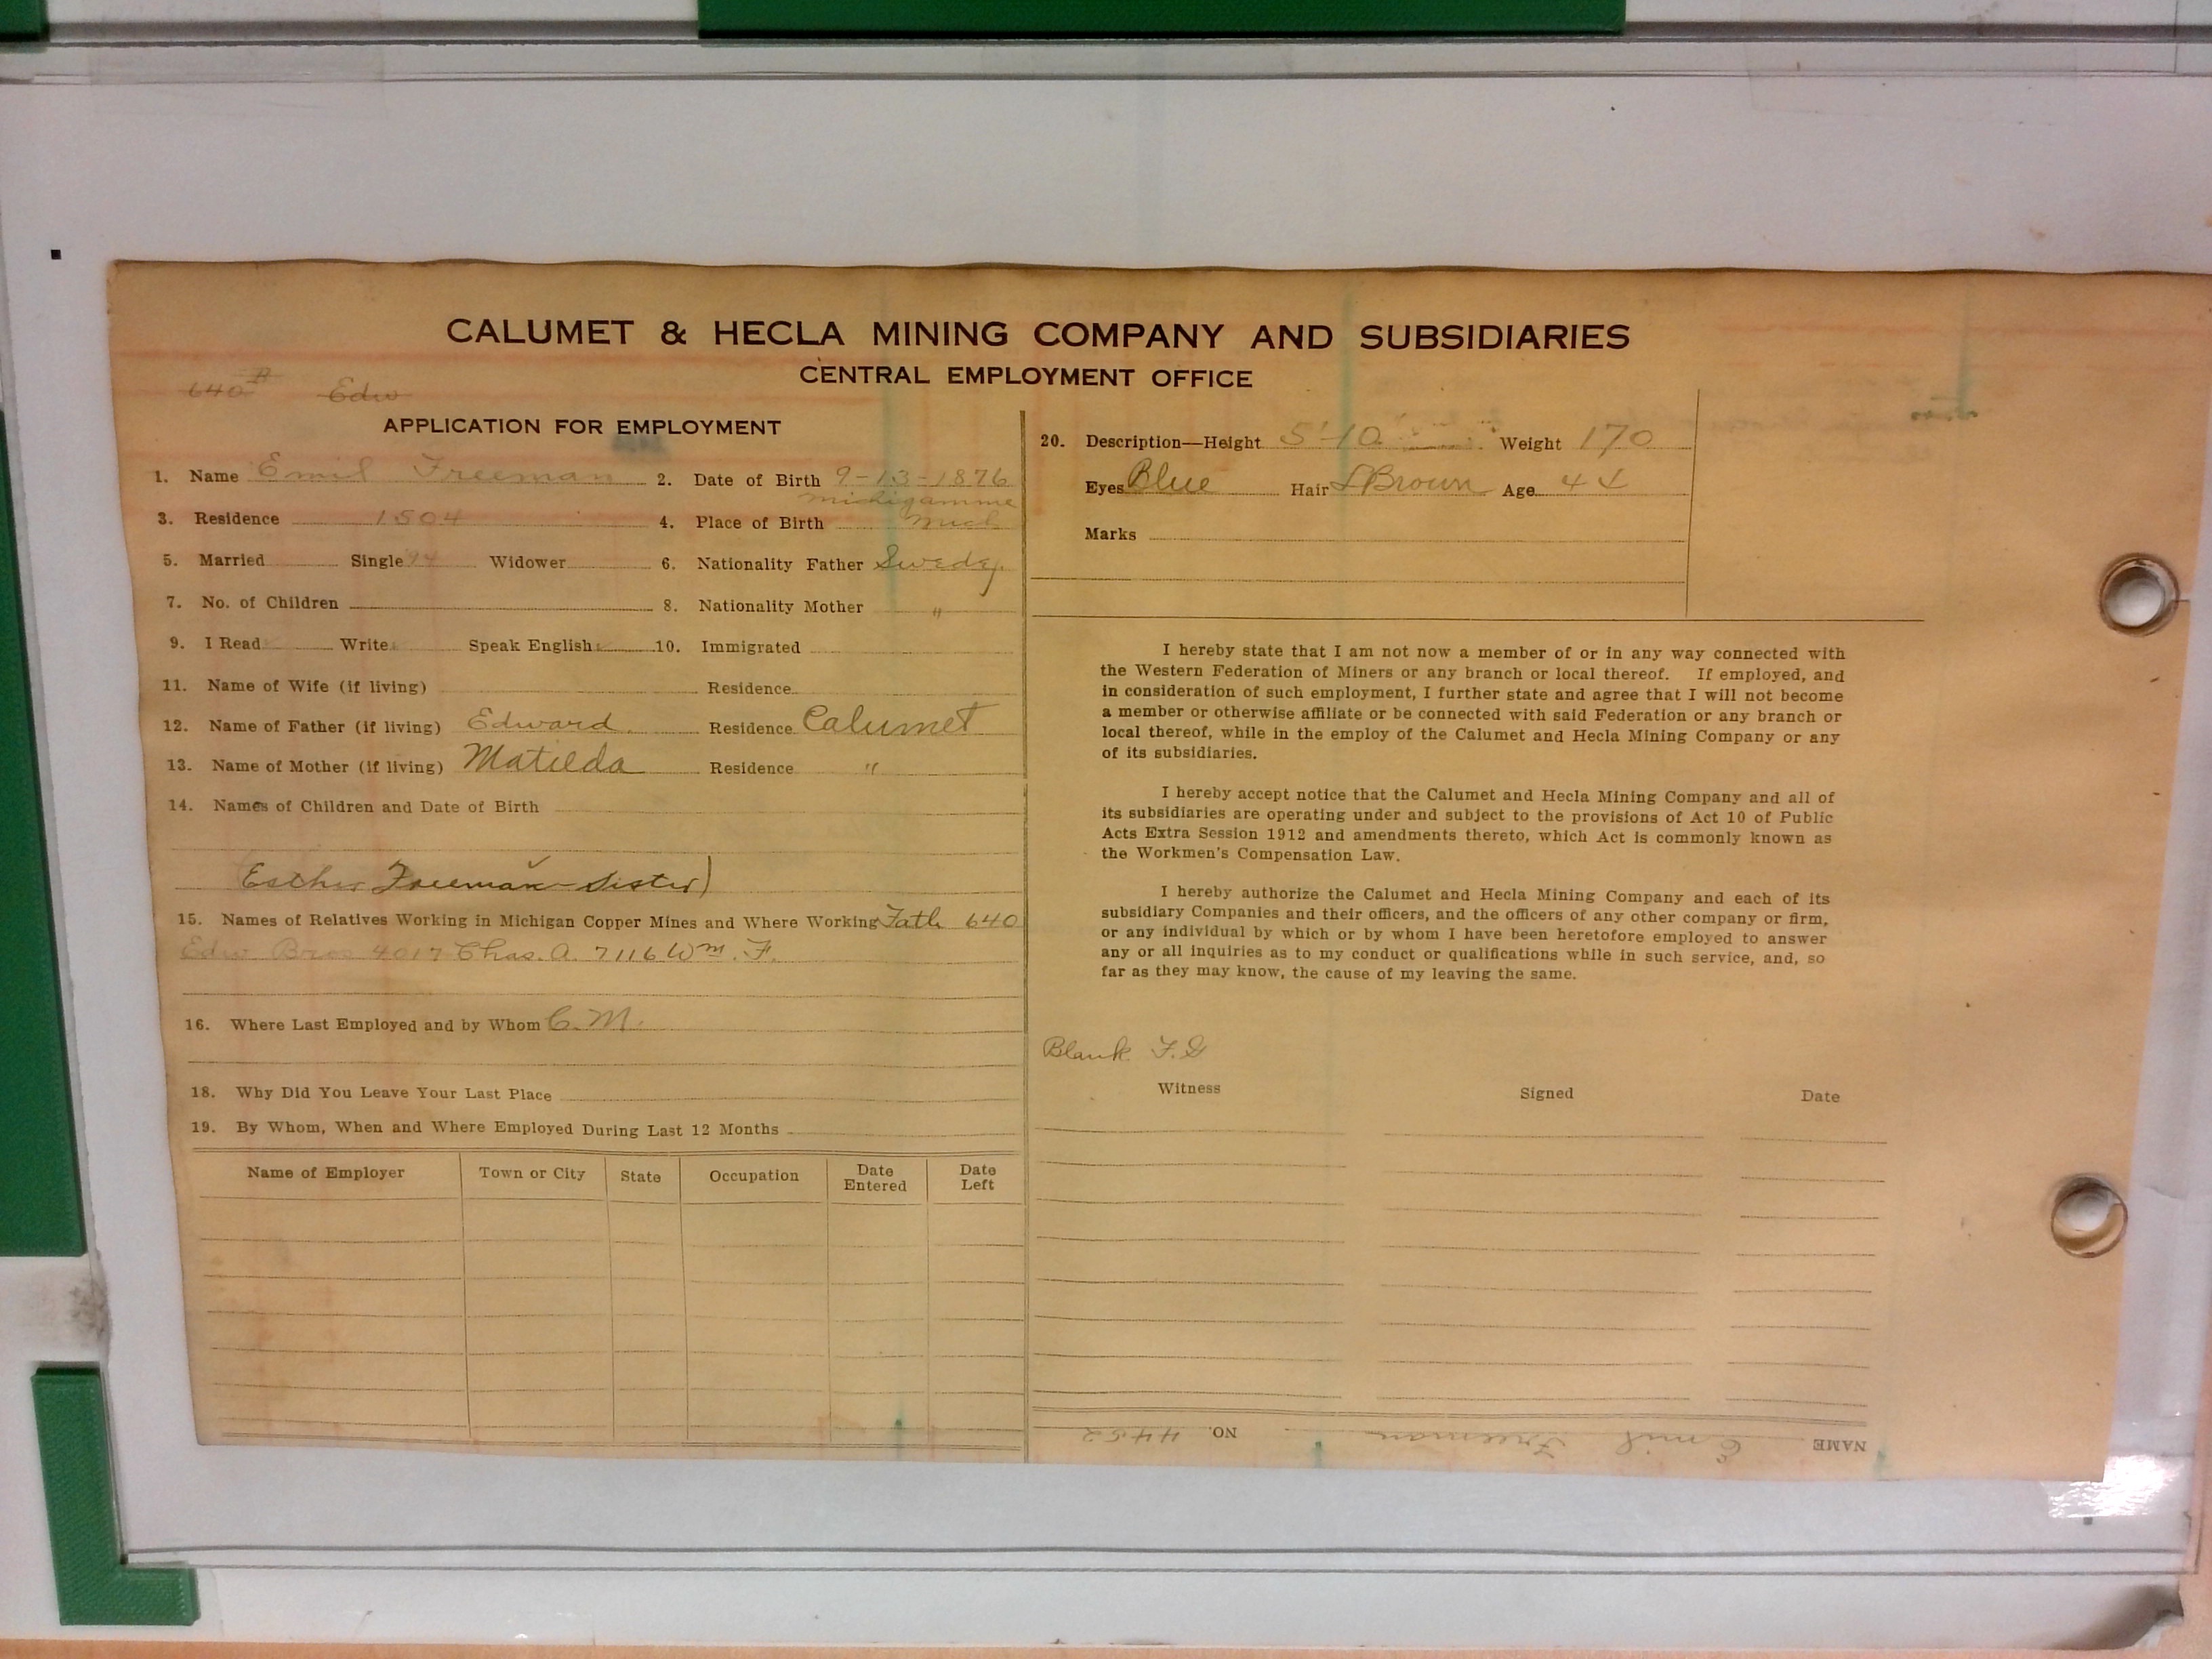 CALUMET & HECLA MINING COMPANY AND SUBSIDIARIES
CENTRAL EMPLOYMENT OFFICE
640 Edw
APPLICATION FOR EMPLOYMENT
1. Name Emil Freeman 2. Date of Birth 9-13-1876
3. Residence 1504 4. Place of Birth Michigamme Mich
5. Married Single Widower 6. Nationality Father Swede
7. No. of Children 8. Nationality Mother "
9. I Read Write Speak English 10. Immigrated
11. Name of Wife (if living) Residence
12. Name of Father (if living) Edward Residence Calumet
13. Name of Mother (if living) Matilda Residence "
14. Names of Children and Date of Birth
(Esther Freeman - Sister)
15. Names of Relatives Working in Michigan Copper Mines and Where Working Fath 640
Edw Bros 4017 Chas. A. 7116 Wm. F.
16. Where Last Employed and by Whom C. M.
18. Why Did You Leave Your Last Place
19. By Whom, When and Where Employed During Last 12 Months
Name of Employer Town or City State Occupation Date Entered Date Left
20. Description—Height 5'-10 Weight 170
Eyes Blue Hair L Brown Age
Marks
I hereby state that I am not now a member of or in any way connected with
the Western Federation of Miners or any branch or local thereof. If employed, and
in consideration of such employment, I further state and agree that I will not become
a member or otherwise affiliate or be connected with said Federation or any branch or
local thereof, while in the employ of the Calumet and Hecla Mining Company or any
of its subsidiaries.
I hereby accept notice that the Calumet and Hecla Mining Company and all of
its subsidiaries are operating under and subject to the provisions of Act 10 of Public
Acts Extra Session 1912 and amendments thereto, which Act is commonly known as
the Workmen's Compensation Law.
I hereby authorize the Calumet and Hecla Mining Company and each of its
subsidiary Companies and their officers, and the officers of any other company or firm,
or any individual by which or by whom I have been heretofore employed to answer
any or all inquiries as to my conduct or qualifications while in such service, and, so
far as they may know, the cause of my leaving the same.
Blank F.G
Witness Signed Date
NAME Emil Freeman NO. 4452